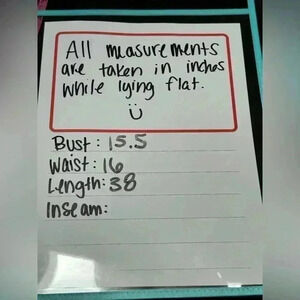 All measurements
are taken in inches
while lying flat.
Bust: 15.5
Waist: 16
Length: 38
Inseam: